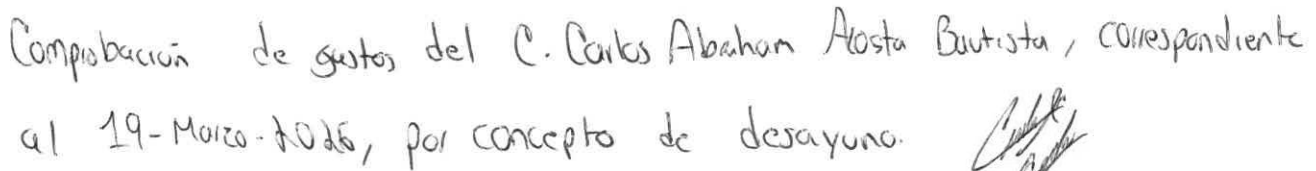 Comprobación de gastos del C. Carlos Abraham Acosta Bautista, correspondiente
al 19-Marzo-2026, por concepto de desayuno.